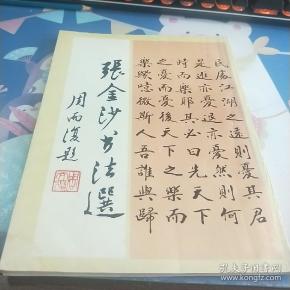 張金沙書法選
周而復題
民處江湖之遠則憂其君
是進亦憂退亦憂然則何
時而樂耶其必曰先天下
之憂而憂後天下之樂而
樂歟噫微斯人吾誰與歸
孔夫子旧书网